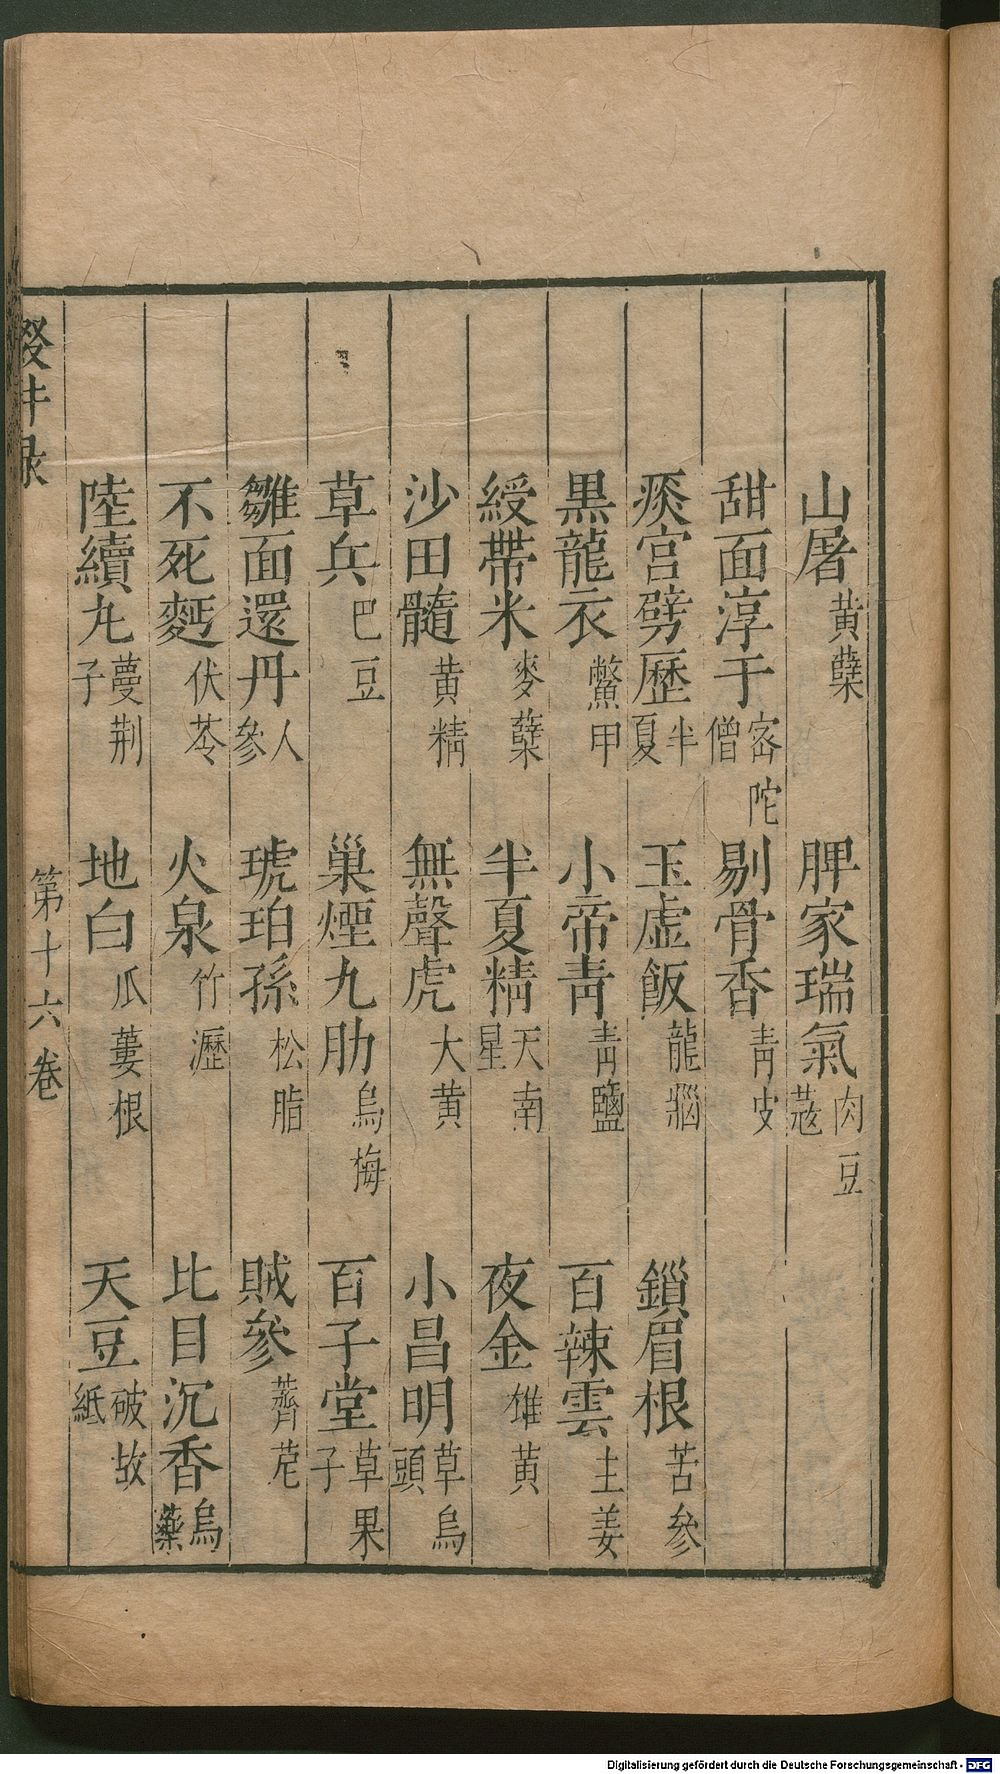 山屠黃蘖 脾家瑞氣肉豆蔻
甜面淳于宻陀僧 剔骨香青皮
痰宮劈歷半夏 玉虚飯龍腦 鎻眉根苦參
黒龍衣鱉甲 小帝青青鹽 百辣雲土姜
綬帶米麥蘖 半夏精天南星 夜金雄黃
沙田髓黃精 無聲虎大黃 小昌明草烏頭
草兵巴豆 巢煙九肋烏梅 百子堂草果子
雛面還丹人參 琥珀孫松脂 賊參薺苨
不死麪伏苓 火泉竹瀝 比目沉香烏藥
陸續丸蔓荆子 地白瓜蔞根 天豆破故紙
輟耕录 第十六卷
Digitalisierung gefördert durch die Deutsche Forschungsgemeinschaft - DFG